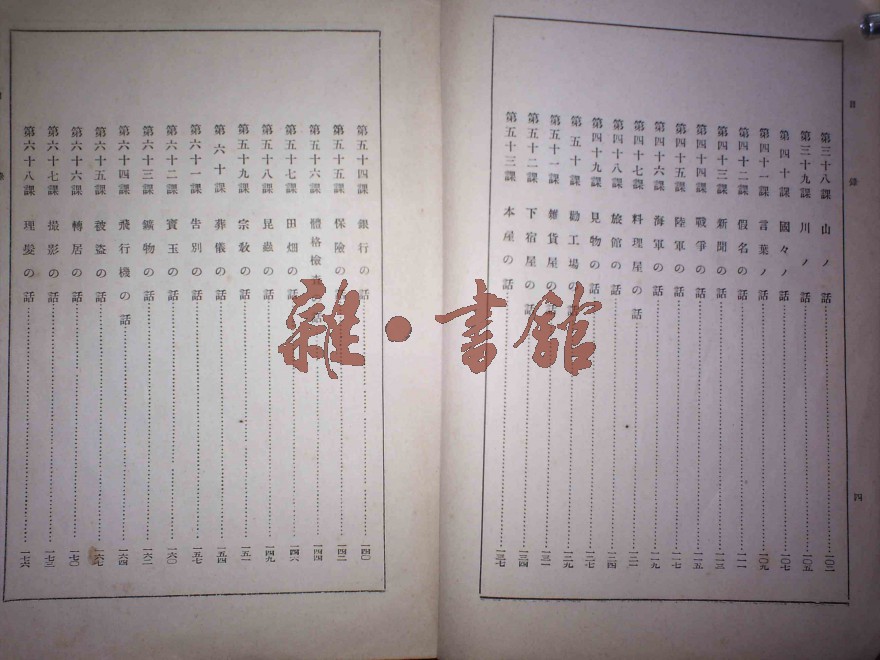 目錄
第三十八課 山ノ話 一〇三
第三十九課 川ノ話 一〇五
第四十課 國々ノ話 一〇七
第四十一課 言葉ノ話 一〇九
第四十二課 假名の話 一一一
第四十三課 新聞の話 一一三
第四十四課 戰爭の話 一一五
第四十五課 陸軍の話 一一七
第四十六課 海軍の話 一一九
第四十七課 料理屋の話
第四十八課 旅館の話 一二四
第四十九課 見物の話 一二七
第五十課 勸工場の 一二九
第五十一課 雜貨屋の 一三一
第五十二課 下宿屋の話 一三四
第五十三課 本屋の話 一三七
四
第五十四課 銀行の話 一四〇
第五十五課 保險の 一四二
第五十六課 體格檢査 話 一四四
第五十七課 田畑の話 一四六
第五十八課 昆蟲の話 一四九
第五十九課 宗敎の話 一五一
第六十課 葬儀の話 一五四
第六十一課 告別の話 一五七
第六十二課 寶玉の話 一六〇
第六十三課 鑛物の話 一六二
第六十四課 飛行機の話 一六四
第六十五課 被盜の話 一六七
第六十六課 轉居の話 一七〇
第六十七課 撮影の話 一七三
第六十八課 理髮の話 一七六
雜·書館